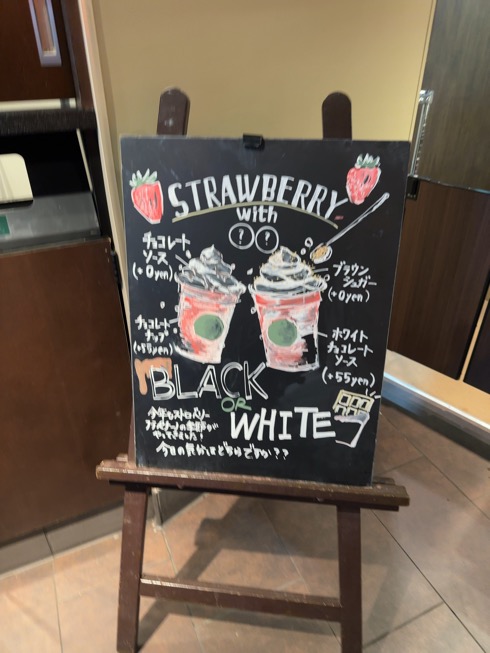 STRAWBERRY
with
? ?
チョコレート
ソース
(+0yen)
ブラウン
シュガー
(+0yen)
チョコレート
チップ
(+55yen)
ホワイト
チョコレート
ソース
(+55yen)
BLACK
OR
WHITE
今年もストロベリー
フラペチーノの季節が
やってきました!
今日の気分はどちらですか??